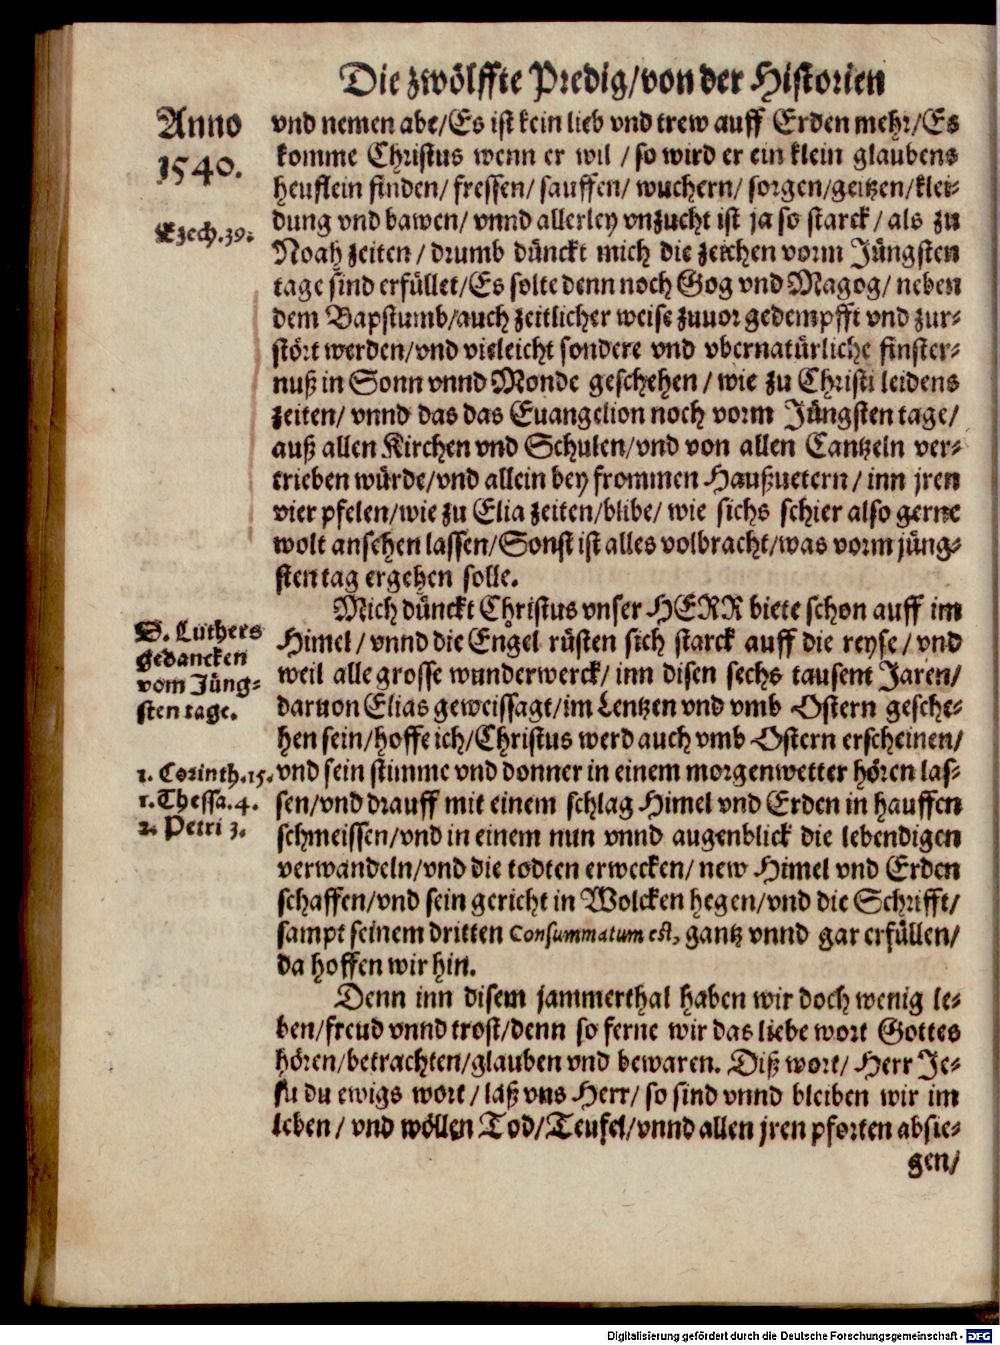 Die zwölffte Predig/von der Historien
Anno
1540.
Ezech.39.
vnd nemen abe/Es ist kein lieb vnd trew auff Erden mehr/Es
komme Christus wenn er wil / so wird er ein klein glaubens
heuflein finden/ fressen/ sauffen/ wuchern/ sorgen/geitzen/klei-
dung vnd bawen/ vnnd allerley vnzucht ist ja so starck/ als zu
Noah zeiten/ drumb dünckt mich die zeichen vorm Jüngsten
tage sind erfüllet/Es solte denn noch Gog vnd Magog/ neben
dem Bapstumb/auch zeitlicher weise zuuor gedempfft vnd zur-
stört werden/vnd vieleicht sondere vnd vbernatürliche finster-
nuß in Sonn vnnd Monde geschehen/ wie zu Christi leidens
zeiten/ vnnd das das Euangelion noch vorm Jüngsten tage/
auß allen Kirchen vnd Schulen/vnd von allen Cantzeln ver-
trieben würde/vnd allein bey frommen Haußuetern/ inn jren
vier pfelen/wie zu Elia zeiten/blibe/ wie sichs schier also gerne
wolt ansehen lassen/Sonst ist alles volbracht/was vorm jüng-
sten tag ergehen solle.
D. Luthers
gedancken
vom Jüng-
sten tage.
1. Corinth.15.
1.Thessa.4.
2. Petri 3.
Mich dünckt Christus vnser HERR biete schon auff im
Himel/ vnnd die Engel rüsten sich starck auff die reyse/ vnd
weil alle grosse wunderwerck/ inn disen sechs tausent Jaren/
daruon Elias geweissagt/im Lentzen vnd vmb Ostern gesche-
hen sein/hoffe ich/Christus werd auch vmb Ostern erscheinen/
vnd sein stimme vnd donner in einem morgenwetter hören las-
sen/vnd drauff mit einem schlag Himel vnd Erden in hauffen
schmeissen/vnd in einem nun vnnd augenblick die lebendigen
verwandeln/vnd die todten erwecken/ new Himel vnd Erden
schaffen/vnd sein gericht in Wolcken hegen/vnd die Schrifft/
sampt seinem dritten Consummatum est, gantz vnnd gar erfüllen/
da hoffen wir hin.
Denn inn disem jammerthal haben wir doch wenig le-
ben/freud vnnd trost/denn so ferne wir das liebe wort Gottes
hören/betrachten/glauben vnd bewaren. Diß wort/ Herr Je-
su du ewigs wort/ laß vns Herr/ so sind vnnd bleiben wir im
leben/ vnd wöllen Tod/Teufel/vnnd allen jren pforten absie-
gen/
Digitalisierung gefördert durch die Deutsche Forschungsgemeinschaft - DFG